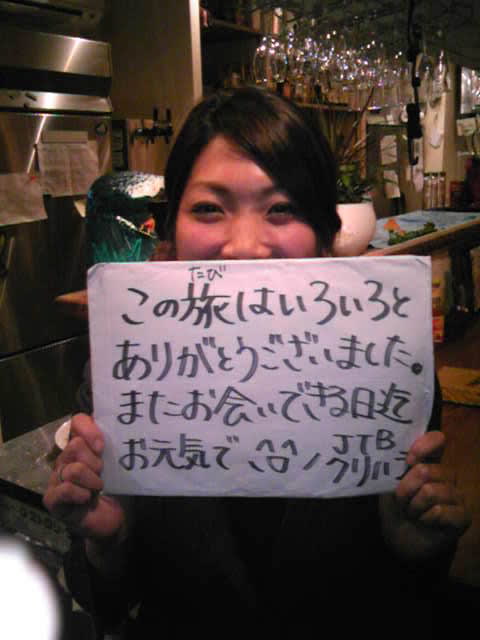 この旅はいろいろと
たび
ありがとうございました。
またお会いできる日迄
お元気で ^日^ノ JTB クリハラ